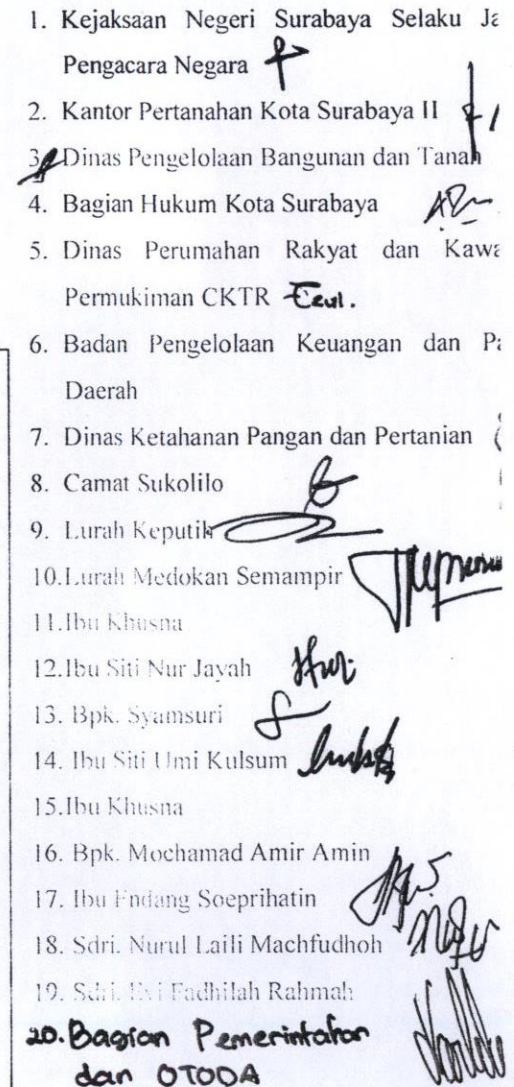 1. Kejaksaan Negeri Surabaya Selaku Ja
Pengacara Negara
2. Kantor Pertanahan Kota Surabaya II
3. Dinas Pengelolaan Bangunan dan Tanah
4. Bagian Hukum Kota Surabaya
5. Dinas Perumahan Rakyat dan Kawa
Permukiman CKTR
6. Badan Pengelolaan Keuangan dan Pa
Daerah
7. Dinas Ketahanan Pangan dan Pertanian
8. Camat Sukolilo
9. Lurah Keputih
10.Lurah Medokan Semampir
11.Ibu Khusna
12.Ibu Siti Nur Jayah
13. Bpk. Syamsuri
14. Ibu Siti Umi Kulsum
15.Ibu Khusna
16. Bpk. Mochamad Amir Amin
17. Ibu Endang Soeprihatin
18. Sdri. Nurul Laili Machfudhoh
19. Sdri. Evi Fadhilah Rahmah
20. Bagian Pemerintahan
dan OTODA